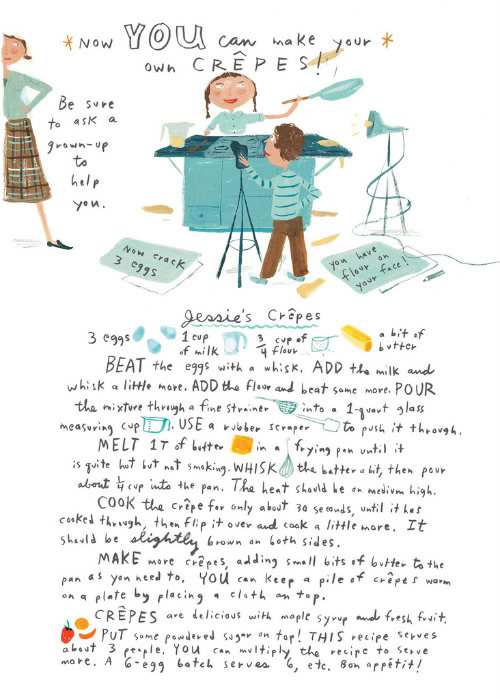 *NOW YOU can make your*
own CRÊPES!
Be sure
to ask a
grown-up
to
help
you.
Now crack
3 eggs
you have
flour on
your face!
Jessie's Crêpes
3 eggs 1 cup of milk 3/4 cup of flour a bit of butter
BEAT the eggs with a whisk. ADD the milk and
whisk a little more. ADD the flour and beat some more. POUR
the mixture through a fine strainer into a 1-quart glass
measuring cup. USE a rubber scraper to push it through.
MELT 1T of butter in a frying pan until it
is quite hot but not smoking. WHISK the batter a bit, then pour
about 1/4 cup into the pan. The heat should be on medium high.
COOK the crêpe for only about 30 seconds, until it has
cooked through, then flip it over and cook a little more. It
should be slightly brown on both sides.
MAKE more crêpes, adding small bits of butter to the
pan as you need to. YOU can keep a pile of crêpes warm
on a plate by placing a cloth on top.
CRÊPES are delicious with maple syrup and fresh fruit.
PUT some powdered sugar on top! THIS recipe serves
about 3 people. YOU can multiply the recipe to serve
more. A 6-egg batch serves 6, etc. Bon appétit!